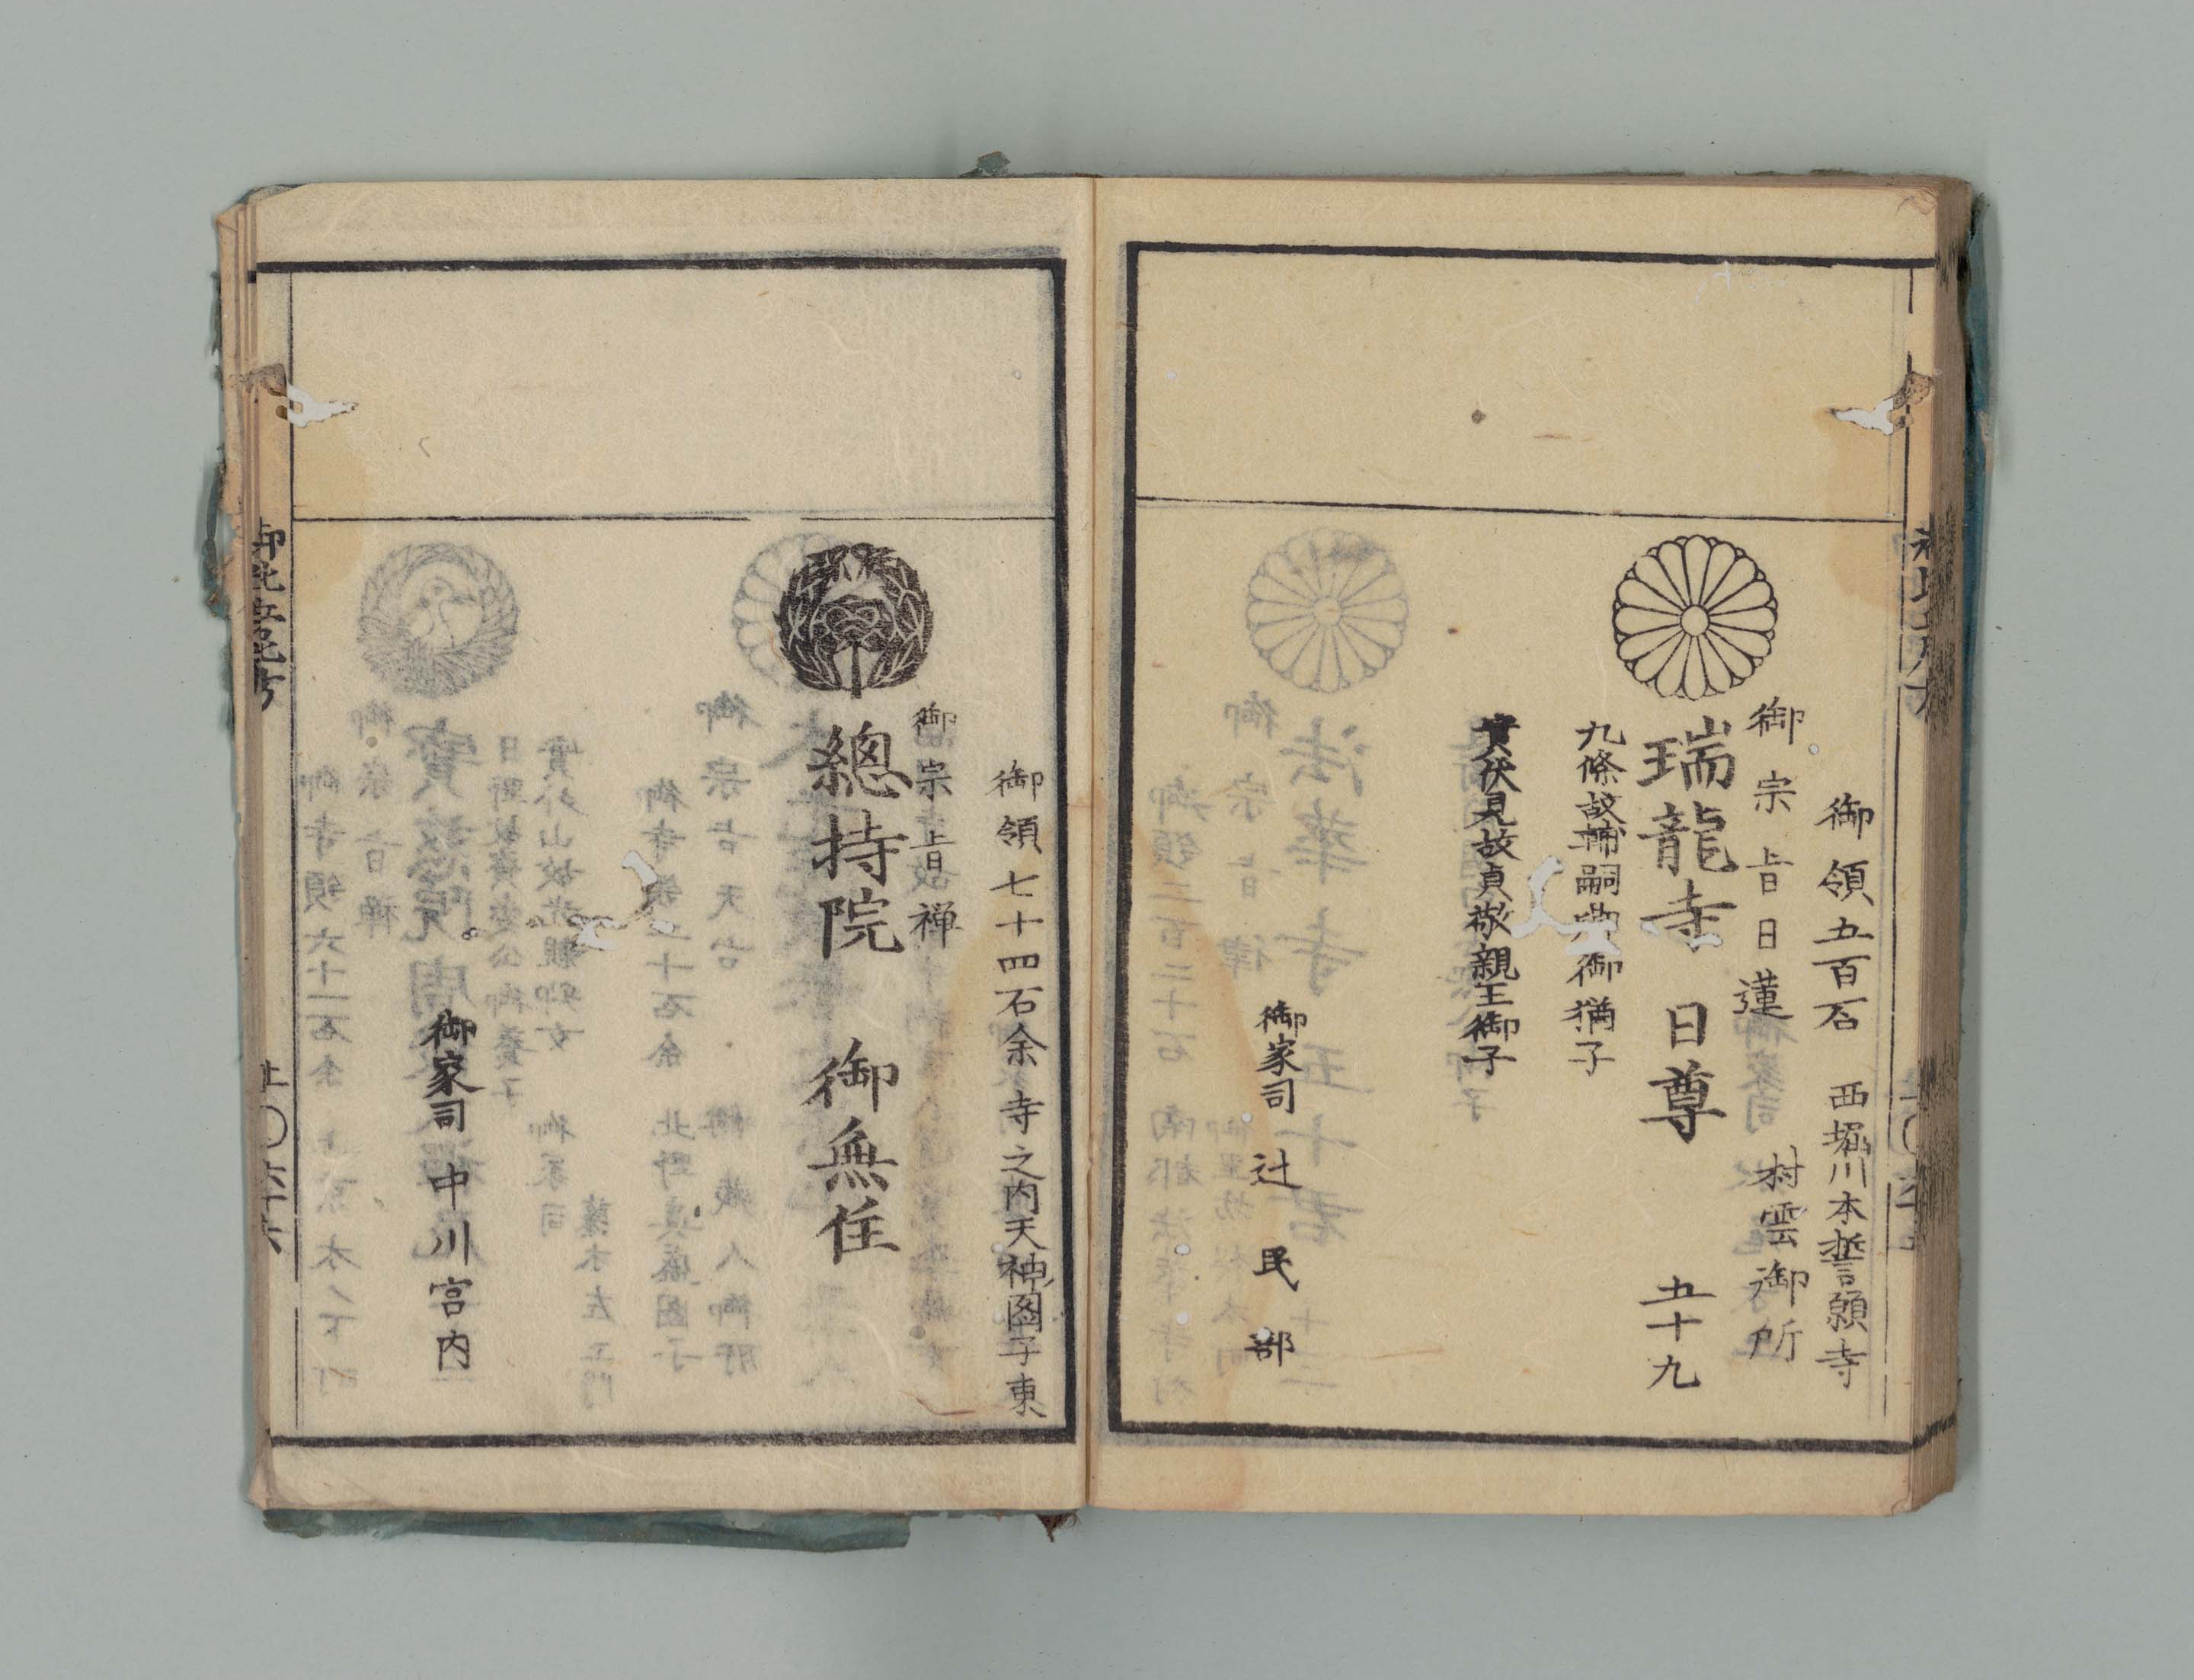 御領五百石　西堀川本誓願寺
御宗旨日蓮　村雲御所
瑞龍寺　日尊　五十九
九條故輔嗣卿御猶子
實伏見故貞敬親王御子
御家司　辻　民部
御領七十四石余寺之内天神圖子東
御宗旨禅
總持院　御無住
御家司　中川宮内